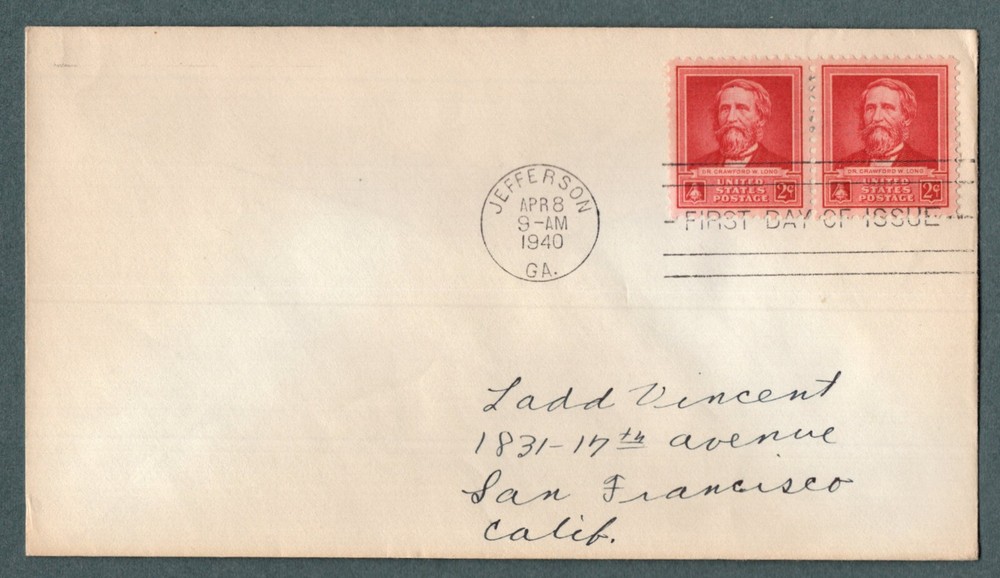 DR. CRAWFORD W. LONG
UNITED
STATES
POSTAGE 2¢
DR. CRAWFORD W. LONG
UNITED
STATES
POSTAGE 2¢
JEFFERSON
APR 8
9-AM
1940
GA.
FIRST DAY OF ISSUE
Ladd Vincent
1831-17th avenue
San Francisco
Calif.